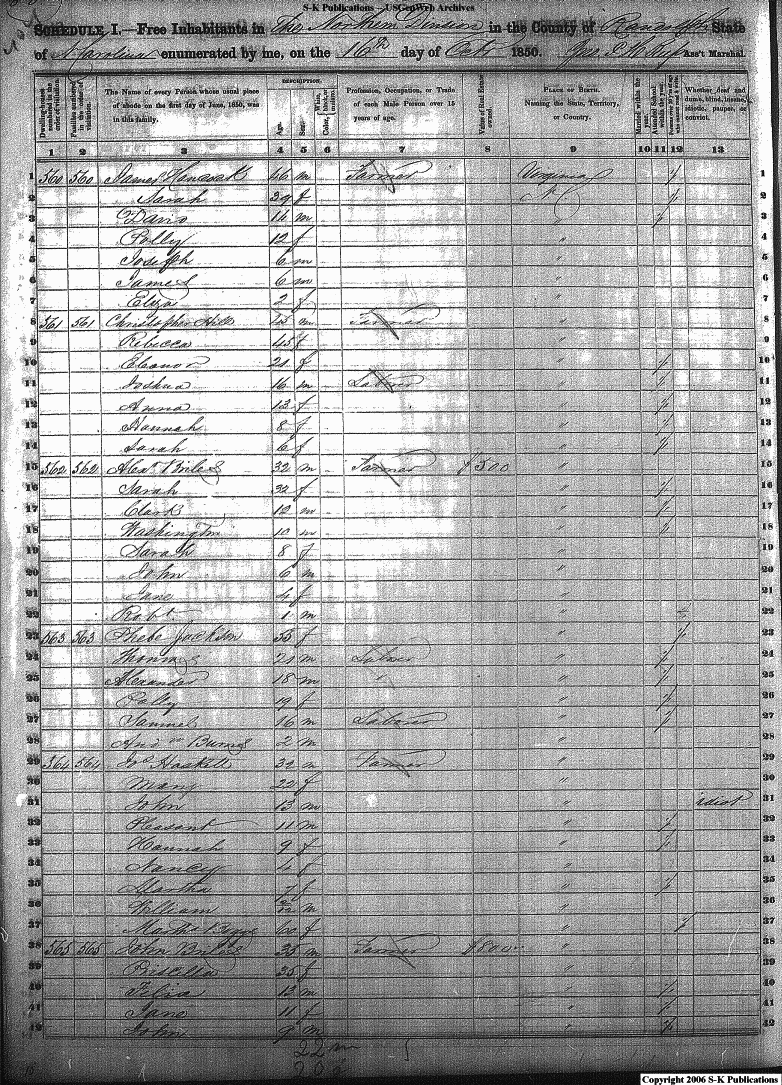 S-K Publications — USGenWeb Archives
SCHEDULE I.—Free Inhabitants in The Northern Division in the County of Randolph State
of N Carolina enumerated by me, on the 16th day of Octr 1850. Ass't Marshal.
Dwelling-houses numbered in the order of visitation.
Families numbered in the order of visitation.
The Name of every Person whose usual place of abode on the first day of June, 1850, was in this family.
DESCRIPTION.
Age.
Sex.
Color, White, black, or mulatto.
Profession, Occupation, or Trade of each Male Person over 15 years of age.
Value of Real Estate owned.
PLACE OF BIRTH. Naming the State, Territory, or Country.
Married within the year.
Attended School within the year.
Whether deaf and dumb, blind, insane, idiotic, pauper, or convict.
1 2 3 4 5 6 7 8 9 10 11 12 13
1 560 560 James 46 m Farmer Virginia / 1
2 Sarah 39 f N C / 2
3 14 m " / 3
4 Polly 12 f " 4
5 Joseph 6 m " 5
6 James 6 m " 6
7 Eliza 2 f " 7
8 561 561 Christopher Hill 45 m Farmer " 8
9 Rebecca 45 f " 9
10 Eleanor 21 f " / 10
11 Joshua 16 m Laborer " / 11
12 Anna 13 f " / 12
13 Hannah 8 f " / 13
14 Sarah 6 f " / 14
15 562 562 Alexr Briles 32 m Farmer $500 " 15
16 Sarah 32 f " / 16
17 Clark 12 m " / 17
18 Washington 10 m " / 18
19 Sarah 8 f " 19
20 John 6 m " 20
21 Jane 4 f " 21
22 Robt. 1 m " / 22
23 563 563 Phebe Jackson 55 f " / 23
24 Thomas 21 m Laborer " / 24
25 Alexander 18 m " " / 25
26 Polly 19 f " / 26
27 Samuel 16 m Laborer " / 27
28 Burns 2 m " 28
29 564 564 Haskett 32 m Farmer " 29
30 Mary 22 f " 30
31 John 13 m " idiot 31
32 Pleasant 11 m " / 32
33 Hannah 9 f " / 33
34 Nancy 4 f " 34
35 Martha 7 f " / 35
36 William m " 36
37 60 f " / 37
38 565 565 John Briles 35 m Farmer $800 " 38
39 Priscilla 35 f " 39
40 13 m " / 40
41 Jane 11 f " / 41
42 John 9 m " / 42
22 m
20 f
Copyright 2006 S-K Publications